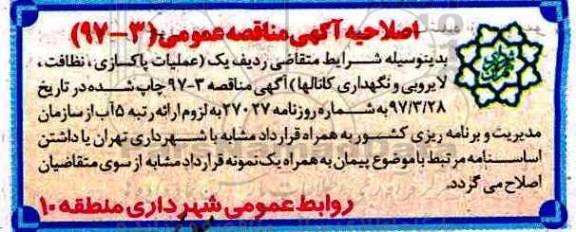 اصلاحیه آگهی مناقصه عمومی (۳-۹۷)
بدینوسیله شرایط متقاضی ردیف یک (عملیات پاکسازی، نظافت،
لایروبی و نگهداری کانالها) آگهی مناقصه ۳-۹۷ چاپ شده در تاریخ
۹۷/۳/۲۸ به شماره روزنامه ۲۷۰۲۷ به لزوم ارائه رتبه ۵ آب از سازمان
مدیریت و برنامه ریزی کشور به همراه قرارداد مشابه با شهرداری تهران یا داشتن
اساسنامه مرتبط با موضوع پیمان به همراه یک نمونه قرارداد مشابه از سوی متقاضیان
اصلاح می گردد.
روابط عمومی شهرداری منطقه ۱۰